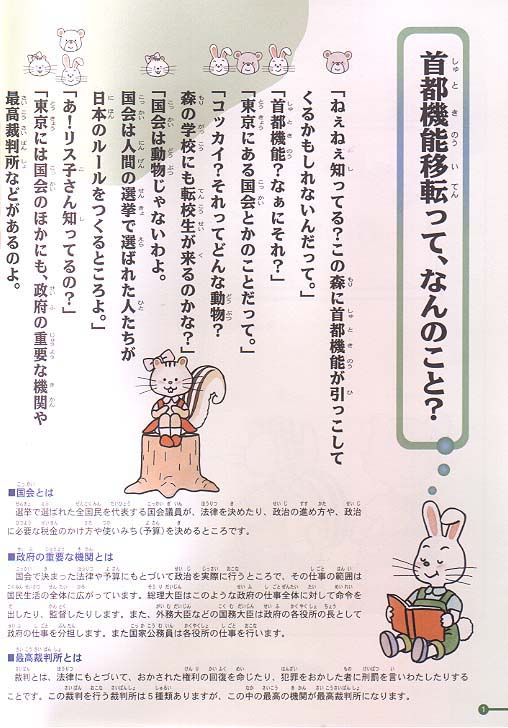 首都機能移転って、なんのこと？
「ねぇねぇ知ってる？この森に首都機能が引っこして
くるかもしれないんだって。」
「首都機能？なぁにそれ？」
「東京にある国会とかのことだって。」
「コッカイ？それってどんな動物？
森の学校にも転校生が来るのかな？」
「国会は動物じゃないわよ。
国会は人間の選挙で選ばれた人たちが
日本のルールをつくるところよ。」
「あ！リス子さん知ってるの？」
「東京には国会のほかにも、政府の重要な機関や
最高裁判所などがあるのよ。
■国会とは
選挙で選ばれた全国民を代表する国会議員が、法律を決めたり、政治の進め方や、政治
に必要な税金のかけ方や使いみち（予算）を決めるところです。
■政府の重要な機関とは
国会で決まった法律や予算にもとづいて政治を実際に行うところで、その仕事の範囲は
国民生活の全体に広がっています。総理大臣はこのような政府の仕事全体に対して命令を
出したり、監督したりします。また、外務大臣などの国務大臣は政府の各役所の長として
政府の仕事を分担します。また国家公務員は各役所の仕事を行います。
■最高裁判所とは
裁判とは、法律にもとづいて、おかされた権利の回復を命じたり、犯罪をおかした者に刑罰を言いわたしたりする
ことです。この裁判を行う裁判所は５種類ありますが、この中の最高の機関が最高裁判所になります。
1